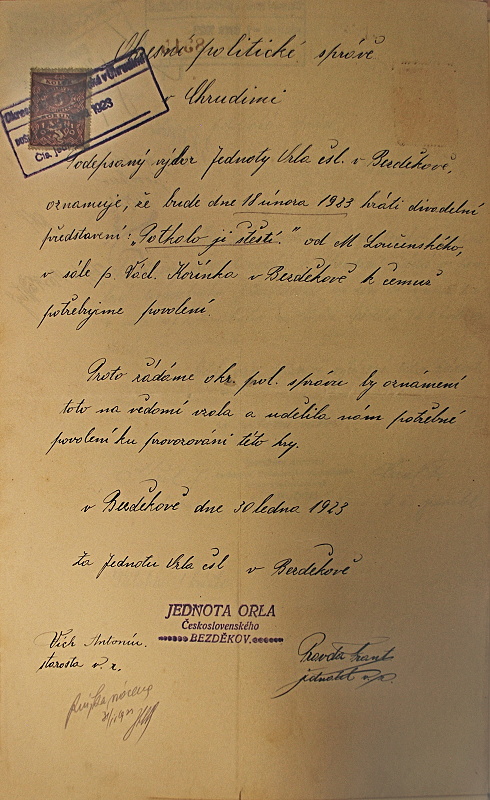 Okresní politické správě
v Chrudimi
Podepsaný výbor Jednoty Orla čsl. v Bezděkově,
oznamuje, že bude dne 18 února 1923 hráti divadelní
představení: „Potkalo ji štěstí." od M. Loučenského,
v sále p. Václ. Kořínka v Bezděkově k čemuž
potřebujeme povolení.
Proto žádáme okr. pol. správu by oznámení
toto na vědomí vzala a udělila nám potřebné
povolení ku provozování této hry.
v Bezděkově dne 30 ledna 1923
za Jednotu Orla čsl v Bezděkově
JEDNOTA ORLA
Československého
BEZDĚKOV.
Vích Antonín.
starosta v. r.
Pravda Frant
jednatel v.r.